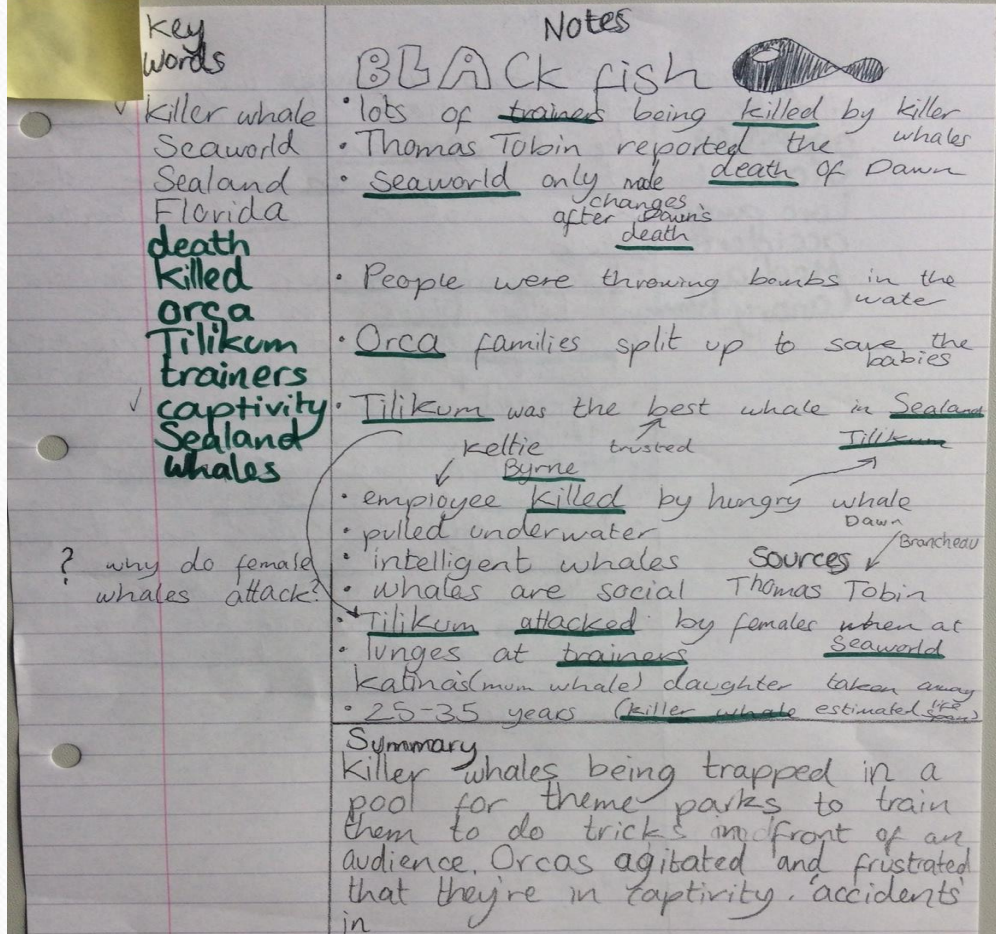 Key
words
killer whale
Seaworld
Sealand
Florida
death
killed
orca
Tilikum
trainers
captivity
Sealand
whales
? why do female
whales attack?
Notes
BLACK fish
• lots of trainers being killed by killer
whales
• Thomas Tobin reported the
death of Dawn
• Seaworld only made
changes
after Dawn's
death
• People were throwing bombs in the
water
• Orca families split up to save the
babies
• Tilikum was the best whale in Sealand
trusted
Tilikum
Keltie
Byrne
• employee killed by hungry whale
• pulled underwater
• intelligent whales
Dawn
Brancheau
Sources
• whales are social Thomas Tobin
• Tilikum attacked by females when at
Seaworld
• lunges at trainers
Katina's (mum whale) daughter taken away
• 25-35 years (killer whale estimated life span)
Summary
Killer whales being trapped in a
pool for theme parks to train
them to do tricks in front of an
audience. Orcas agitated and frustrated
that they're in captivity. 'accidents'
in